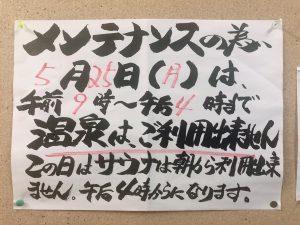 メンテナンスの為、
5月25日(月)は、
午前9時〜午后4時まで
温泉は、ご利用出来ません
この日はサウナは朝から利用出来
ません。午后4時からになります。